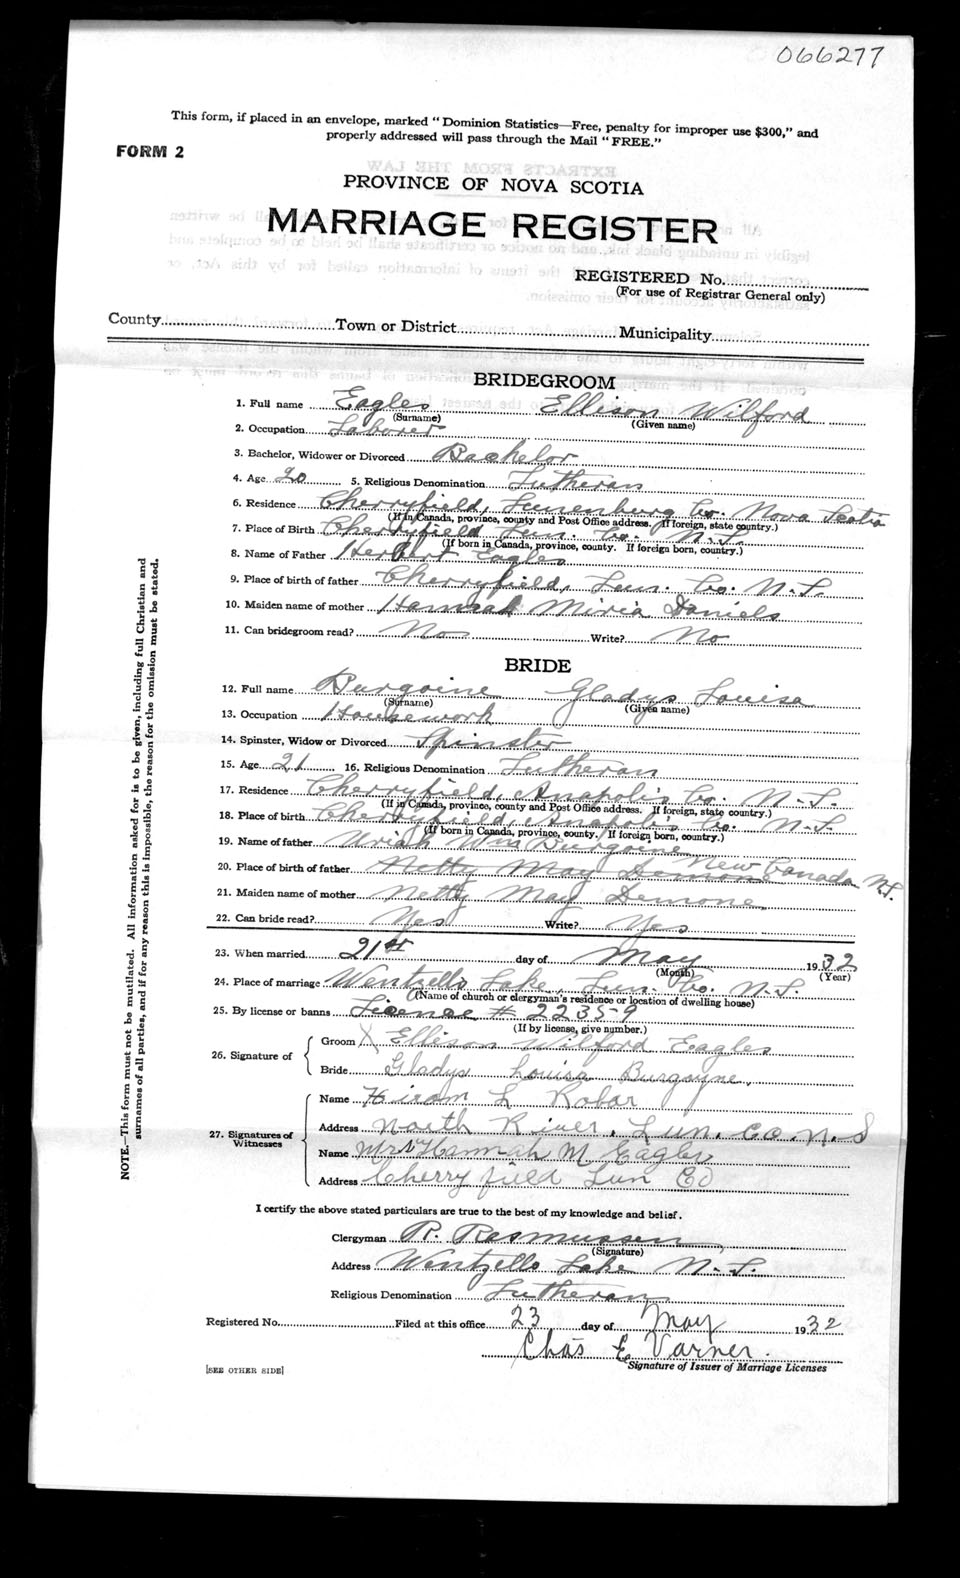 066277
This form, if placed in an envelope, marked “Dominion Statistics—Free, penalty for improper use $300,” and
properly addressed will pass through the Mail “FREE.”
FORM 2
PROVINCE OF NOVA SCOTIA
MARRIAGE REGISTER
REGISTERED No.
(For use of Registrar General only)
County Town or District Municipality
BRIDEGROOM
1. Full name Eagles Ellison Wilford
(Surname) (Given name)
2. Occupation Laborer
3. Bachelor, Widower or Divorced Bachelor
4. Age 20 5. Religious Denomination Lutheran
6. Residence Cherryfield, Lunenburg Co. Nova Scotia
(If in Canada, province, county and Post Office address. If foreign, state country.)
7. Place of Birth Cherryfield Lun. Co. N.S.
(If born in Canada, province, county. If foreign born, country.)
8. Name of Father Herbert Eagles
9. Place of birth of father Cherryfield, Lun. Co. N.S.
10. Maiden name of mother Hannah Miria Daniels
11. Can bridegroom read? No Write? No
BRIDE
12. Full name Burgoine Gladys Louisa
(Surname) (Given name)
13. Occupation Housework
14. Spinster, Widow or Divorced Spinster
15. Age 21 16. Religious Denomination Lutheran
17. Residence Cherryfield, Anapolis Co. N.S.
(If in Canada, province, county and Post Office address. If foreign, state country.)
18. Place of birth Cherryfield, Anapolis Co. N.S.
(If born in Canada, province, county. If foreign born, country.)
19. Name of father Uriah Wm Burgoine
20. Place of birth of father Netty May Demone New Canada N.S.
21. Maiden name of mother Netty May Demone
22. Can bride read? Yes Write? Yes
23. When married 21st day of May 1932
(Month) (Year)
24. Place of marriage Wentzells Lake, Lun. Co. N.S.
(Name of church or clergyman's residence or location of dwelling house)
25. By license or banns License # 22359
(If by license, give number.)
26. Signature of
Groom X Ellison Wilford Eagles
Bride Gladys Louisa Burgoyne.
27. Signatures of Witnesses
Name Hiram L Robar
Address North River, Lun. Co. N.S
Name Mrs Hannah M Eagles
Address Cherryfield Lun Co
I certify the above stated particulars are true to the best of my knowledge and belief.
Clergyman R. Rasmussen
(Signature)
Address Wentzells Lake N.S.
Religious Denomination Lutheran
Registered No. Filed at this office 23 day of May 1932
Chas E. Varner.
Signature of Issuer of Marriage Licenses
[SEE OTHER SIDE]
NOTE.—This form must not be mutilated. All information asked for is to be given, including full Christian and
surnames of all parties, and if for any reason this is impossible, the reason for the omission must be stated.